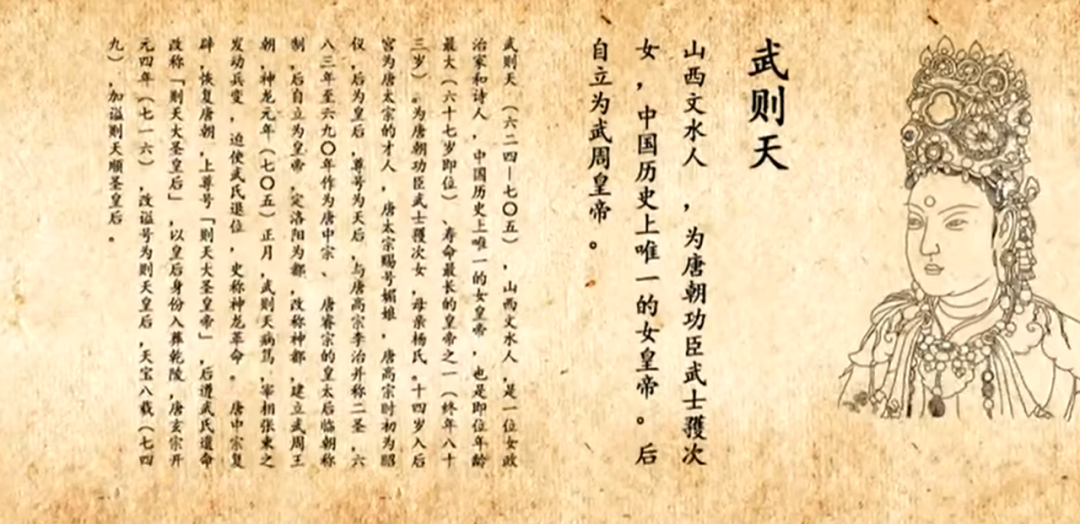 武则天
山西文水人，为唐朝功臣武士彟次
女，中国历史上唯一的女皇帝。后
自立为武周皇帝。
武则天（六二四—七〇五），山西文水人，是一位女政
治家和诗人，中国历史上唯一的女皇帝，也是即位年龄
最大（六十七岁即位）、寿命最长的皇帝之一（终年八十
三岁）。为唐朝功臣武士彟次女，母亲杨氏。十四岁入后
宫为唐太宗的才人，唐太宗赐号媚娘，唐高宗时初为昭
仪，后为皇后，尊号为天后，与唐高宗李治并称二圣，六
八三年至六九〇年作为唐中宗、唐睿宗的皇太后临朝称
制，后自立为皇帝，定洛阳为都，改称神都，建立武周王
朝，神龙元年（七〇五）正月，武则天病笃，宰相张柬之
发动兵变，迫使武氏退位，史称神龙革命。唐中宗复
辟，恢复唐朝，上尊号「则天大圣皇帝」，后遵武氏遗命
改称「则天大圣皇后」，以皇后身份入葬乾陵，唐玄宗开
元四年（七一六），改谥号为则天皇后，天宝八载（七四
九），加谥则天顺圣皇后。